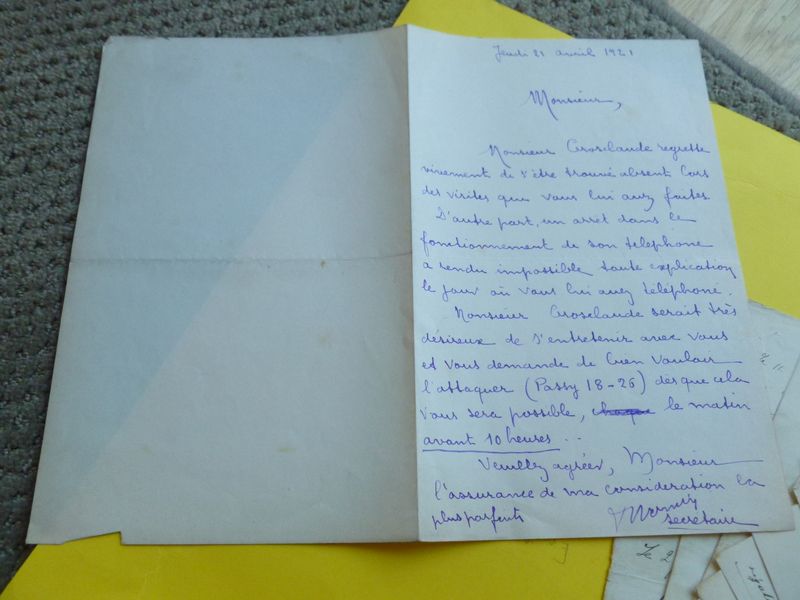 Jeudi 28 avril 1921
Monsieur,
Monsieur Grosclaude regrette
vivement de s'être trouvé absent lors
des visites que vous lui avez faites.
D'autre part, un arrêt dans le
fonctionnement de son téléphone
a rendu impossible toute explication
le jour où vous lui avez téléphoné.
Monsieur Grosclaude serait très
désireux de s'entretenir avec vous
et vous demande de bien vouloir
l'attaquer (Passy 18-26) dès que cela
vous sera possible, chaque le matin
avant 10 heures..
Veuillez agréer, Monsieur
l'assurance de ma considération la
plus parfaite
secrétaire